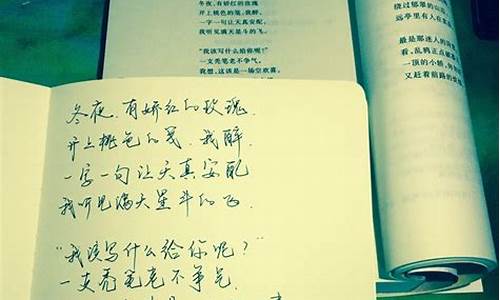 冬夜，有娇红的玫瑰
开上桃色的笺，我醉，
一字一句让天真安配，
我听见满天星斗的飞。
“我该写什么给你呢？”
一支秃笔老不争气，
我想，这该是一场空欢喜，
绕过郁翠的山
远亭里有人在
最是那迷人的
看，乱鸦正点
一顶的小轿，
又赶着前路的
冬夜,有娇红的玫瑰,
开上桃色的笺,我醉,
一字一句让天真安配
我听见满天星斗的飞.
“我该写什么给你呢?”
一支秃笔老不争气,